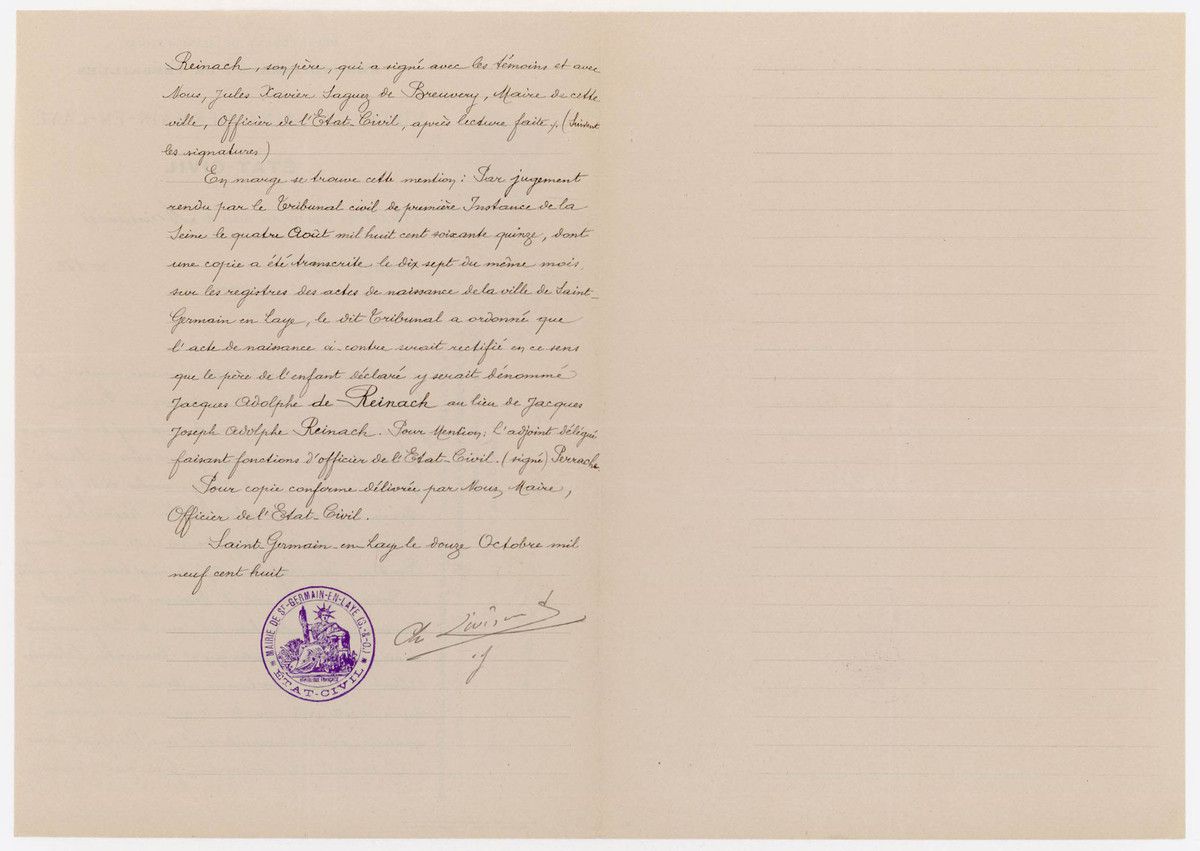 Reinach, son père, qui a signé avec les témoins et avec
Nous, Jules Xavier Saguez de Breuvery, Maire de cette
ville, Officier de l'Etat-Civil, après lecture faite. (Suivent
les signatures)
En marge se trouve cette mention: Par jugement
rendu par le Tribunal civil de première Instance de la
Seine le quatre Août mil huit cent soixante quinze, dont
une copie a été transcrite le dix sept du même mois,
sur les registres des actes de naissance de la ville de Saint-
Germain en Laye, le dit Tribunal a ordonné que
l'acte de naissance ci-contre serait rectifié en ce sens
que le père de l'enfant déclaré y serait dénommé
Jacques Adolphe de Reinach au lieu de Jacques
Joseph Adolphe Reinach. Pour Mention: L'adjoint délégué
faisant fonctions d'officier de l'Etat-Civil. (signé) Perrache
Pour copie conforme délivrée par Nous, Maire,
Officier de l'Etat-Civil.
Saint Germain en Laye le douze Octobre mil
neuf cent huit
MAIRIE DE ST-GERMAIN-EN-LAYE (S.-&-O.)
RÉPUBLIQUE FRANÇAISE
ETAT-CIVIL